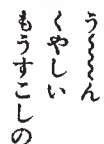 う〜〜〜ん
くやしい
もうすこしの